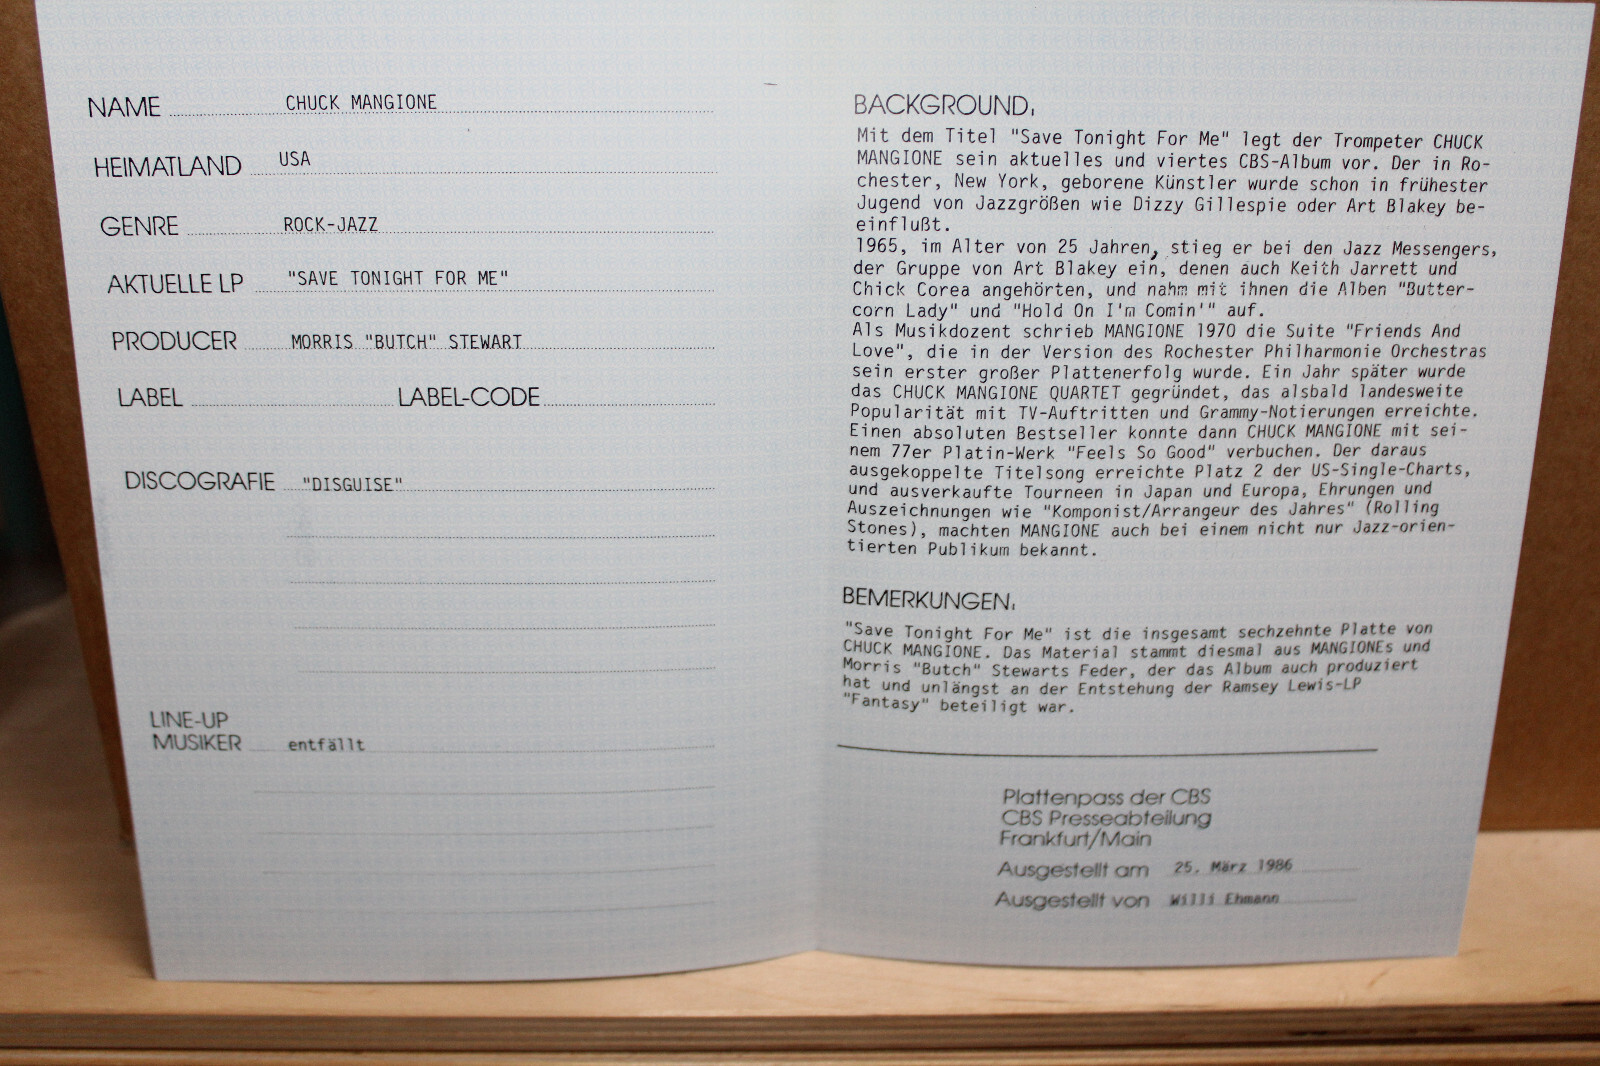 NAME CHUCK MANGIONE
HEIMATLAND USA
GENRE ROCK-JAZZ
AKTUELLE LP "SAVE TONIGHT FOR ME"
PRODUCER MORRIS "BUTCH" STEWART
LABEL LABEL-CODE
DISCOGRAFIE "DISGUISE"
LINE-UP
MUSIKER entfällt
BACKGROUND:
Mit dem Titel "Save Tonight For Me" legt der Trompeter CHUCK
MANGIONE sein aktuelles und viertes CBS-Album vor. Der in Ro-
chester, New York, geborene Künstler wurde schon in frühester
Jugend von Jazzgrößen wie Dizzy Gillespie oder Art Blakey be-
einflußt.
1965, im Alter von 25 Jahren, stieg er bei den Jazz Messengers,
der Gruppe von Art Blakey ein, denen auch Keith Jarrett und
Chick Corea angehörten, und nahm mit ihnen die Alben "Butter-
corn Lady" und "Hold On I'm Comin'" auf.
Als Musikdozent schrieb MANGIONE 1970 die Suite "Friends And
Love", die in der Version des Rochester Philharmonie Orchestras
sein erster großer Plattenerfolg wurde. Ein Jahr später wurde
das CHUCK MANGIONE QUARTET gegründet, das alsbald landesweite
Popularität mit TV-Auftritten und Grammy-Notierungen erreichte.
Einen absoluten Bestseller konnte dann CHUCK MANGIONE mit sei-
nem 77er Platin-Werk "Feels So Good" verbuchen. Der daraus
ausgekoppelte Titelsong erreichte Platz 2 der US-Single-Charts,
und ausverkaufte Tourneen in Japan und Europa, Ehrungen und
Auszeichnungen wie "Komponist/Arrangeur des Jahres" (Rolling
Stones), machten MANGIONE auch bei einem nicht nur Jazz-orien-
tierten Publikum bekannt.
BEMERKUNGEN:
"Save Tonight For Me" ist die insgesamt sechzehnte Platte von
CHUCK MANGIONE. Das Material stammt diesmal aus MANGIONEs und
Morris "Butch" Stewarts Feder, der das Album auch produziert
hat und unlängst an der Entstehung der Ramsey Lewis-LP
"Fantasy" beteiligt war.
Plattenpass der CBS
CBS Presseabteilung
Frankfurt/Main
Ausgestellt am 25. März 1986
Ausgestellt von Willi Ehmann